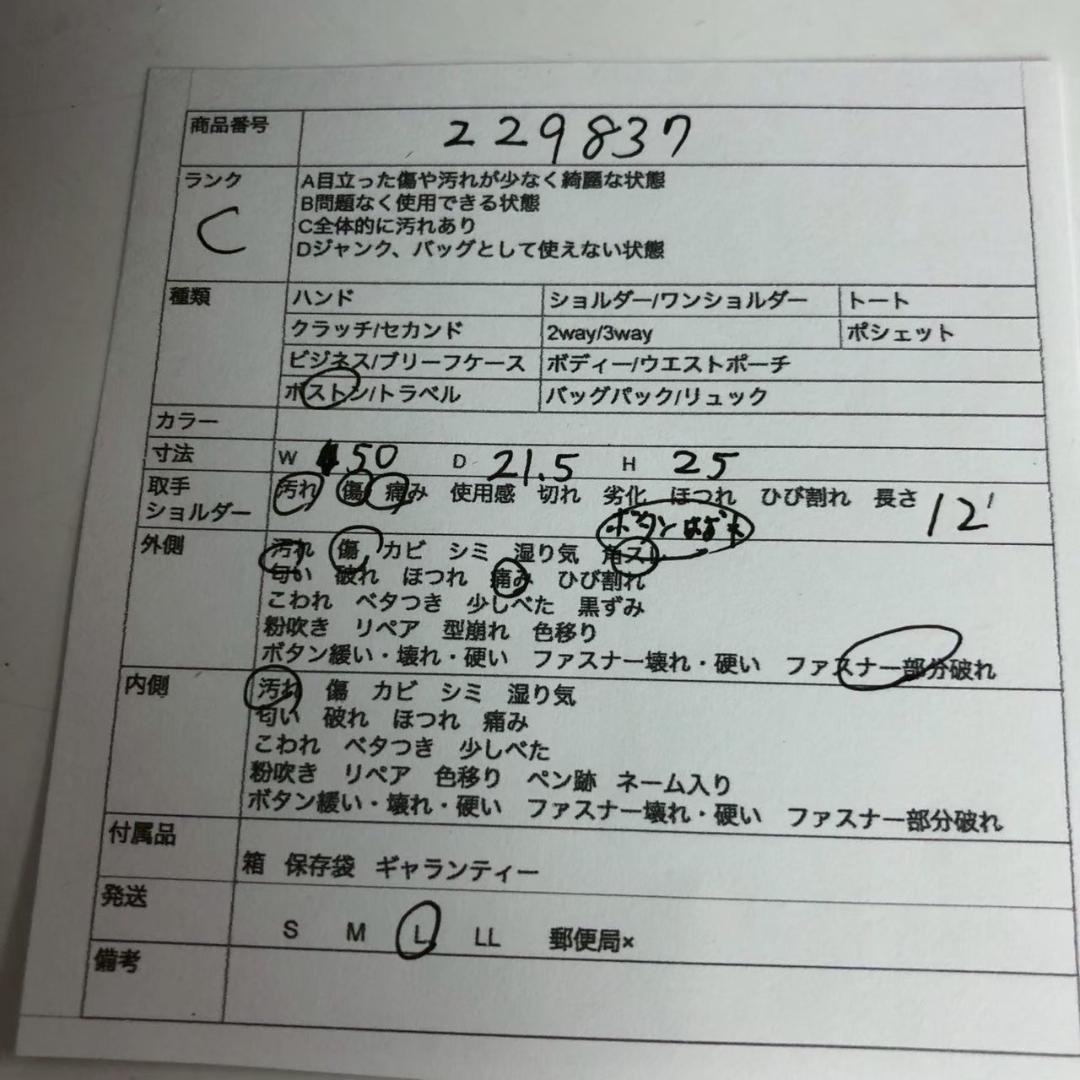 商品番号 229837
ランク C
A目立った傷や汚れが少なく綺麗な状態
B問題なく使用できる状態
C全体的に汚れあり
Dジャンク、バッグとして使えない状態
種類 ハンド ショルダー/ワンショルダー トート
クラッチ/セカンド 2way/3way ポシェット
ビジネス/ブリーフケース ボディー/ウエストポーチ
ボストン/トラベル バッグパック/リュック
カラー
寸法 W 50 D 21.5 H 25
取手 汚れ 傷 痛み 使用感 切れ 劣化 ほつれ ひび割れ 長さ 12
ショルダー
ボタンはずれ
外側 汚れ 傷 カビ シミ 湿り気 角スレ
匂い 破れ ほつれ 痛み ひび割れ
こわれ ベタつき 少しべた 黒ずみ
粉吹き リペア 型崩れ 色移り
ボタン緩い・壊れ・硬い ファスナー壊れ・硬い ファスナー部分破れ
内側 汚れ 傷 カビ シミ 湿り気
匂い 破れ ほつれ 痛み
こわれ ベタつき 少しべた
粉吹き リペア 色移り ペン跡 ネーム入り
ボタン緩い・壊れ・硬い ファスナー壊れ・硬い ファスナー部分破れ
付属品
箱 保存袋 ギャランティー
発送
S M L LL 郵便局×
備考